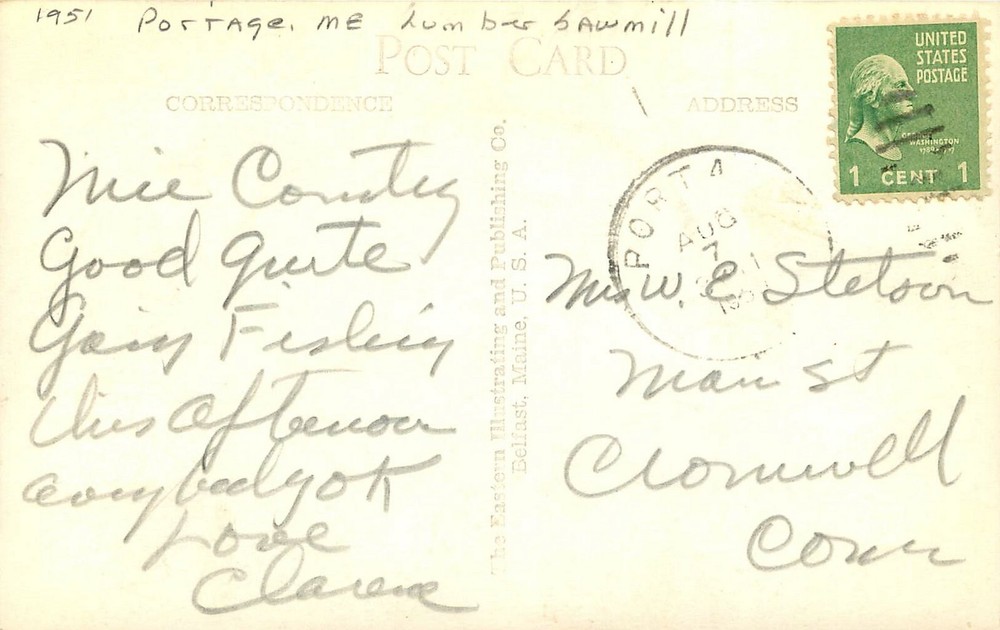 1951 Portage, ME Lumber Sawmill
POST CARD
CORRESPONDENCE
ADDRESS
UNITED
STATES
POSTAGE
WASHINGTON
1 CENT 1
PORTA
AUG
7
Nice Country
Good Guite
Going Fishing
this Afternoon
everybody ok
Love
Clarence
The Eastern Illustrating and Publishing Co.
Belfast, Maine, U. S. A.
Mrs W. E. Stetson
Main St
Cromwell
Conn